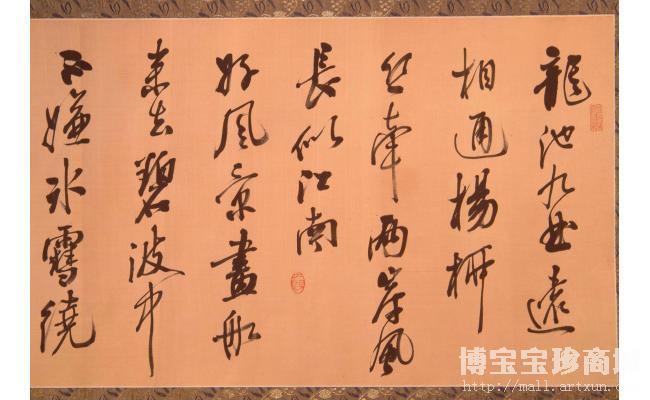 龍池九曲遠
相通楊柳
絲牽兩岸風
長似江南
好風景畫船
来去碧波中
不嫌冰雪繞
博宝宝珍商城
http://mall.artxun.com/